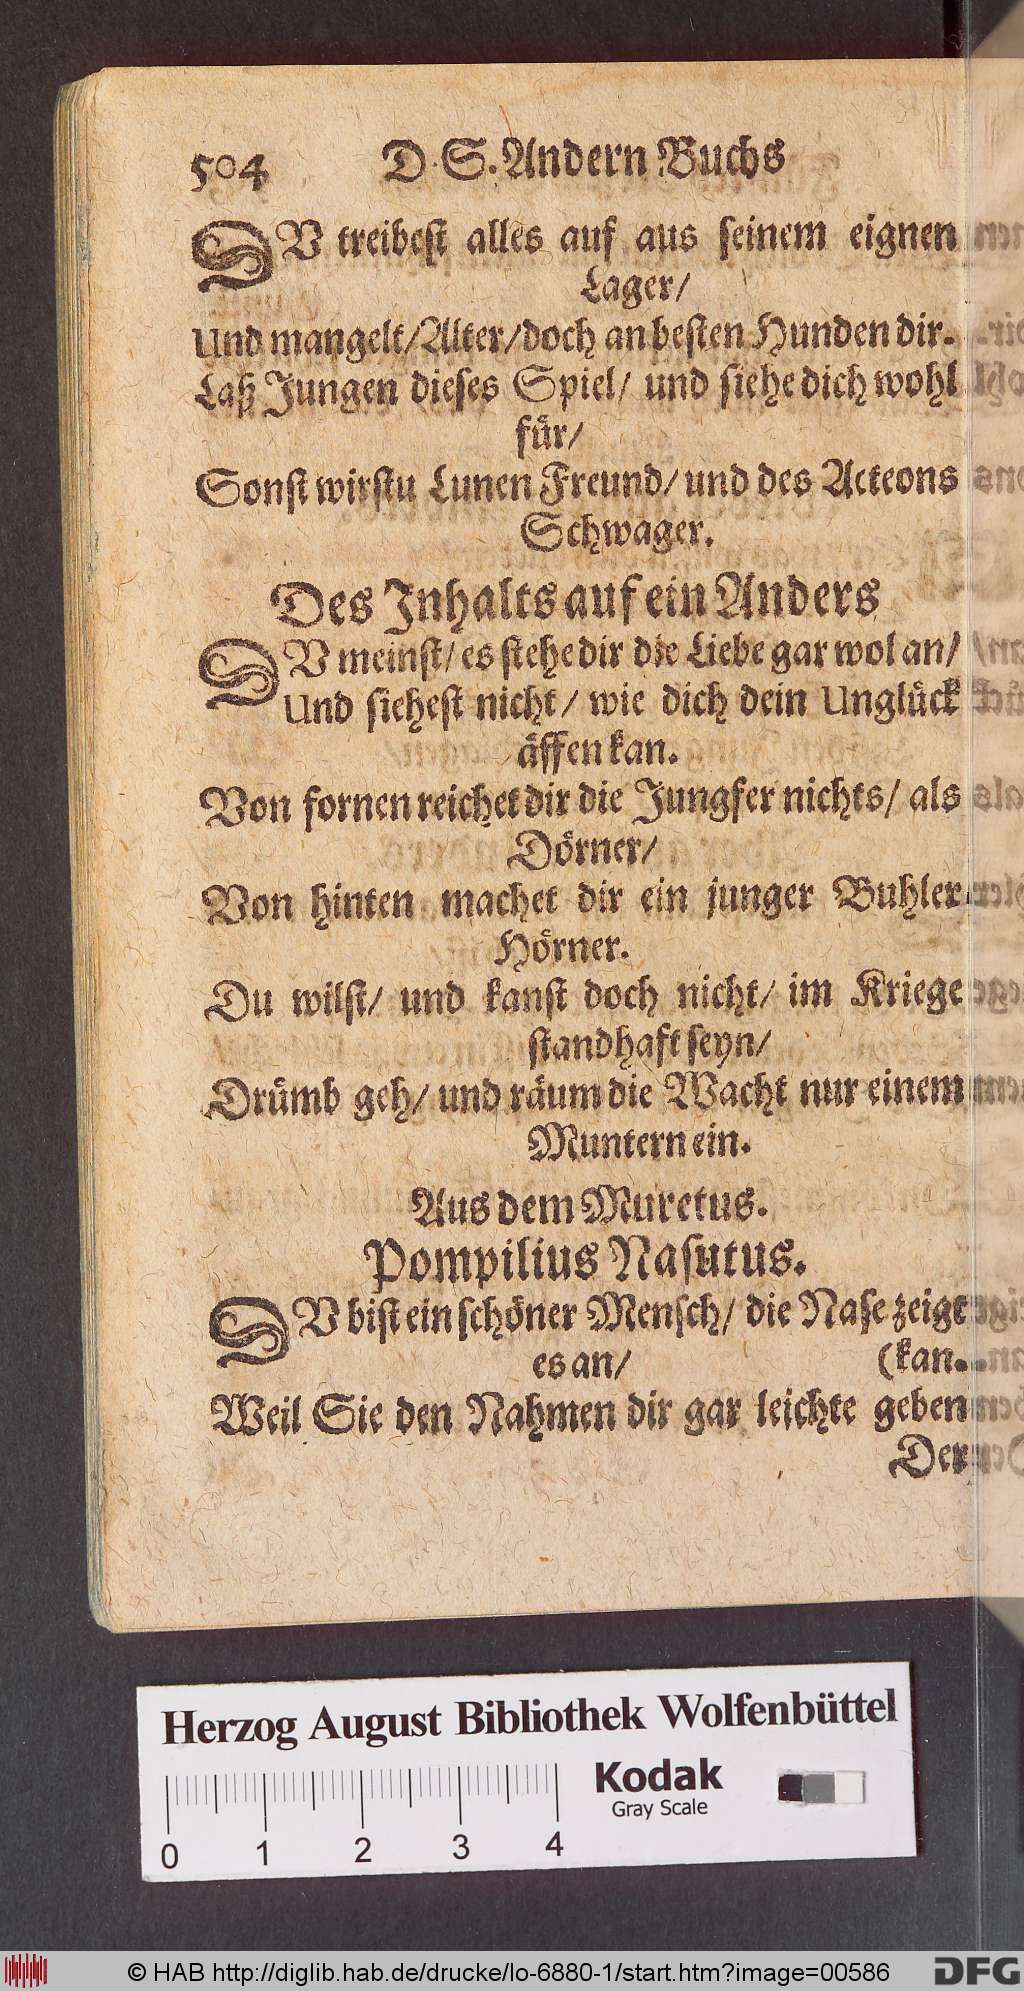 504 D. S. Andern Buchs
DV treibest alles auf aus seinem eignen
Lager/
Und mangelt/Alter/doch an besten Hunden dir.
Laß Jungen dieses Spiel/ und siehe dich wohl
fuͤr/
Sonst wirstu Lunen Freund/ und des Acteons
Schwager.
Des Inhalts auf ein Anders
DV meinst/ es stehe dir die Liebe gar wol an/
Und siehest nicht/ wie dich dein Ungluͤck
aͤffen kan.
Von fornen reichet dir die Jungfer nichts/ als
Doͤrner/
Von hinten machet dir ein junger Buhler
Hoͤrner.
Du wilst/ und kanst doch nicht/ im Kriege
standhaft seyn/
Druͤmb geh/ und raͤum die Wacht nur einem
Muntern ein.
Aus dem Muretus.
Pompilius Nasutus.
DV bist ein schoͤner Mensch/ die Nase zeigt
es an/ (kan.
Weil Sie den Nahmen dir gar leichte geben
Der
Herzog August Bibliothek Wolfenbüttel
Kodak
Gray Scale
0 1 2 3 4
© HAB http://diglib.hab.de/drucke/lo-6880-1/start.htm?image=00586
DFG